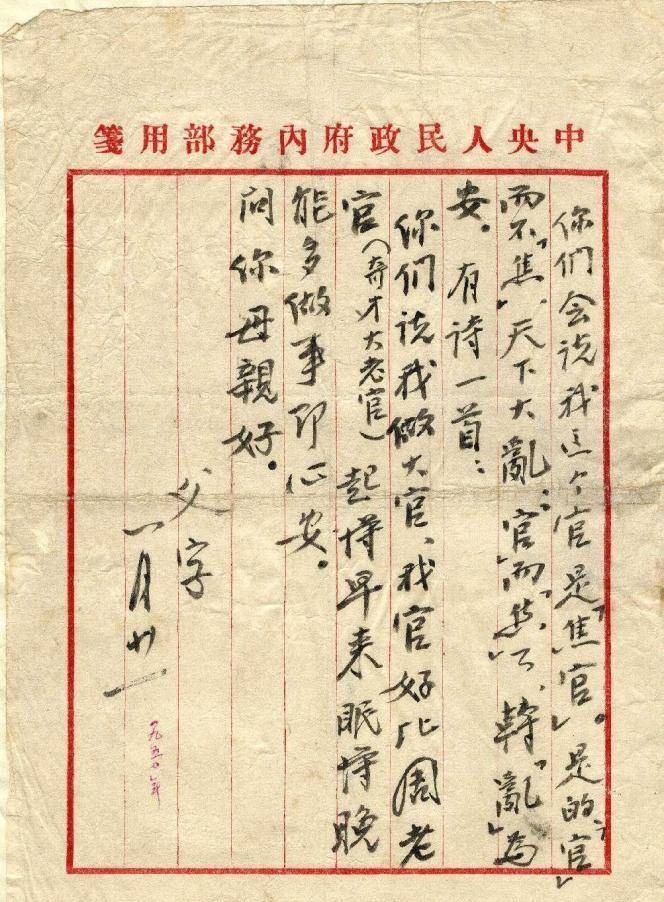 中央人民政府内務部用箋
你們会说我这个官是「焦官」。是的「官」
而不「焦」、天下大亂；官而「焦」了、轉「亂」為
安。有诗一首：
你們说我做大官、我官好比周老
官（奇才大老官）起得早来眠得晚
能多做事即心安。
问你母親好。
父字
一月廿一
一九五〇年